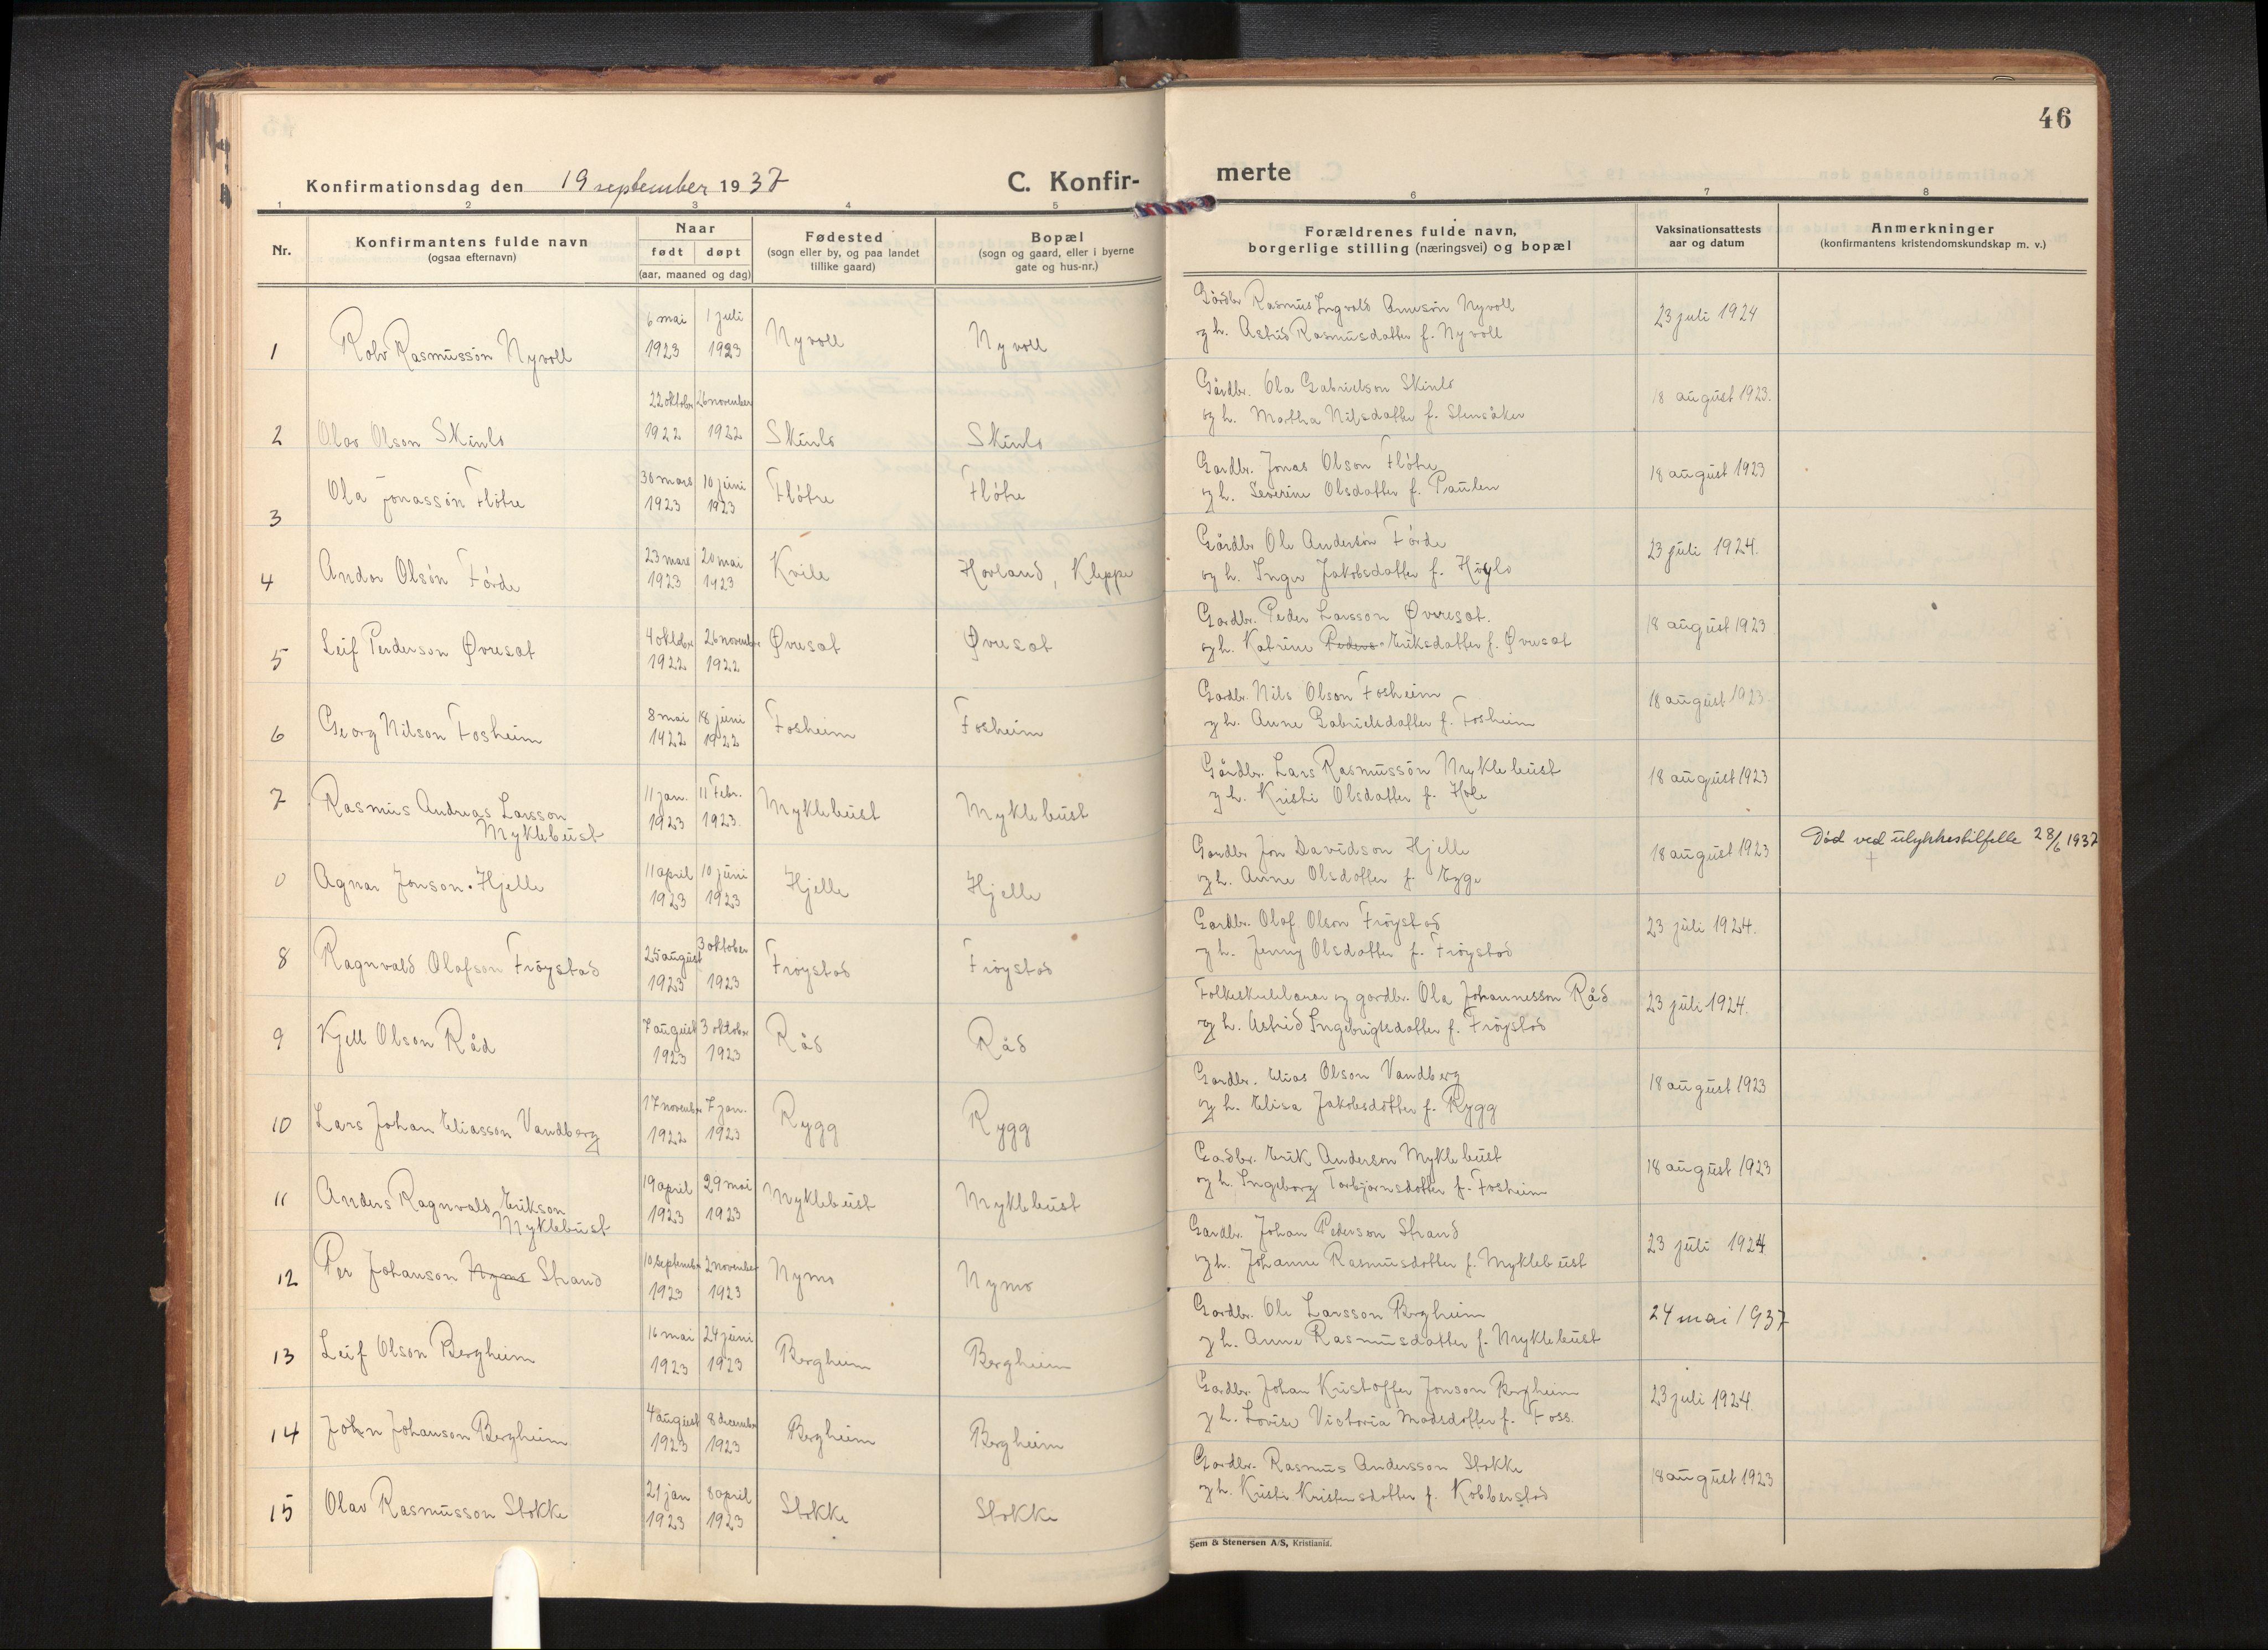 46
Konfirmationsdag den 19 september 1937
C. Konfir-
merte
1 2 3 4 5 6 7 8
Nr.
Konfirmantens fulde navn
(ogsaa efternavn)
Naar
født døpt
(aar, maaned og dag)
Fødested
(sogn eller by, og paa landet
tillike gaard)
Bopæl
(sogn og gaard, eller i byerne
gate og hus-nr.)
Forældrenes fulde navn,
borgerlige stilling (næringsvei) og bopæl
Vaksinationsattests
aar og datum
Anmerkninger
(konfirmantens kristendomskundskap m. v.)
1 Rolv Rasmusson Nyvoll 6 mai 1923 1 juli 1923 Nyvoll Nyvoll
Gårdbr Rasmus Ingvald Arneson Nyvoll 23 juli 1924
og h. Astrid Rasmusdatter f. Nyvoll
2 Olav Olson Skinlo 22 oktober 1922 26 november 1922 Skinlo Skinlo
Gårdbr. Ola Gabrielson Skinlo 18 august 1923.
og h. Martha Nilsdatter f. Stensåker
3 Ola Jonasson Fløtre 30 mars 1923 10 juni 1923 Fløtre Fløtre
Gardbr. Jonas Olson Fløtre 18 august 1923
og h. Severine Olsdatter f. Paulen
4 Andor Olson Førde 23 mars 1923 20 mai 1923 Kvile Hovland, Kleppe
Gårdbr Ole Anderson Førde 23 juli 1924.
og h. Inger Jakobsdatter f.
5 Leif Pederson Øvresat 4 oktober 1922 26 november 1922 Øvresat Øvresat
Gardbr. Peder Larsson Øvresat. 18 august 1923
og h. Katrine Peders- Eriksdatter f. Øvresat
6 Georg Nilson Fosheim 8 mai 1922 18 juni 1922 Fosheim Fosheim
Gardbr. Nils Olson Fosheim 18 august 1923.
og h. Anne Gabrielsdatter f. Fosheim
7 Rasmus Andreas Larsson
Myklebust 11 jan. 1923 11 Febr. 1923. Myklebust Myklebust
Gårdbr. Lars Rasmusson Myklebust 18 august 1923
og h. Kristi Olsdatter f. Hole
0 Agnar Jonson Hjelle 11 april 1923 10 juni 1923 Hjelle Hjelle
Gardbr Jon Davidson Hjelle 18 august 1923 Død ved ulykkestilfelle 28/6 1937
og h. Anne Olsdatter f. Egge
8 Ragnvald Olafson Frøystad 25 august 1923 3 oktober 1923 Frøystad Frøystad
Gardbr. Olaf Olson Frøystad 23 juli 1924.
og h. Jenny Olsdatter f. Frøystad
9 Kjell Olson Råd 7 august 1923 3 oktober 1923 Råd Råd
Folkeskulelærar og gardbr. Ola Johannesson Råd 23 juli 1924.
og h. Astrid Ingebrigtsdatter f. Frøystad
10 Lars Johan Eliasson Vandberg 17 november 1922 7 jan. 1923 Rygg Rygg
Gardbr. Elias Olson Vandberg 18 august 1923
og h. Elisa Jakobsdatter f. Rygg
11 Anders Ragnvald Erikson
Myklebust 19 april 1923 29 mai 1923 Myklebust Myklebust
Gardbr. Erik Anderson Myklebust 18 august 1923
og h. Ingeborg Torbjørnsdatter f. Fosheim
12 Per Johanson Nymo Strand 10 september 1923 2 november 1923 Nymo Nymo
Gardbr. Johan Pederson Strand 23 juli 1924
og h. Johanne Rasmusdatter f. Myklebust
13 Leif Olson Bergheim 16 mai 1923 24 juni 1923 Bergheim Bergheim
Gardbr. Ole Larsson Bergheim 24 mai 1937
og h. Anne Rasmusdatter f. Myklebust
14 John Johanson Bergheim 4 august 1923 8 december 1923 Bergheim Bergheim
Gardbr. Johan Kristoffer Jonson Bergheim 23 juli 1924.
og h. Lovise Victoria Madsdatter f. Foss.
15 Olav Rasmusson Stokke 21 jan 1923 8 april 1923 Stokke Stokke
Gardbr. Rasmus Andersson Stokke 18 august 1923
og h. Kristi Kristensdatter f. Kobberstad
Sem & Stenersen A/S, Kristiania.